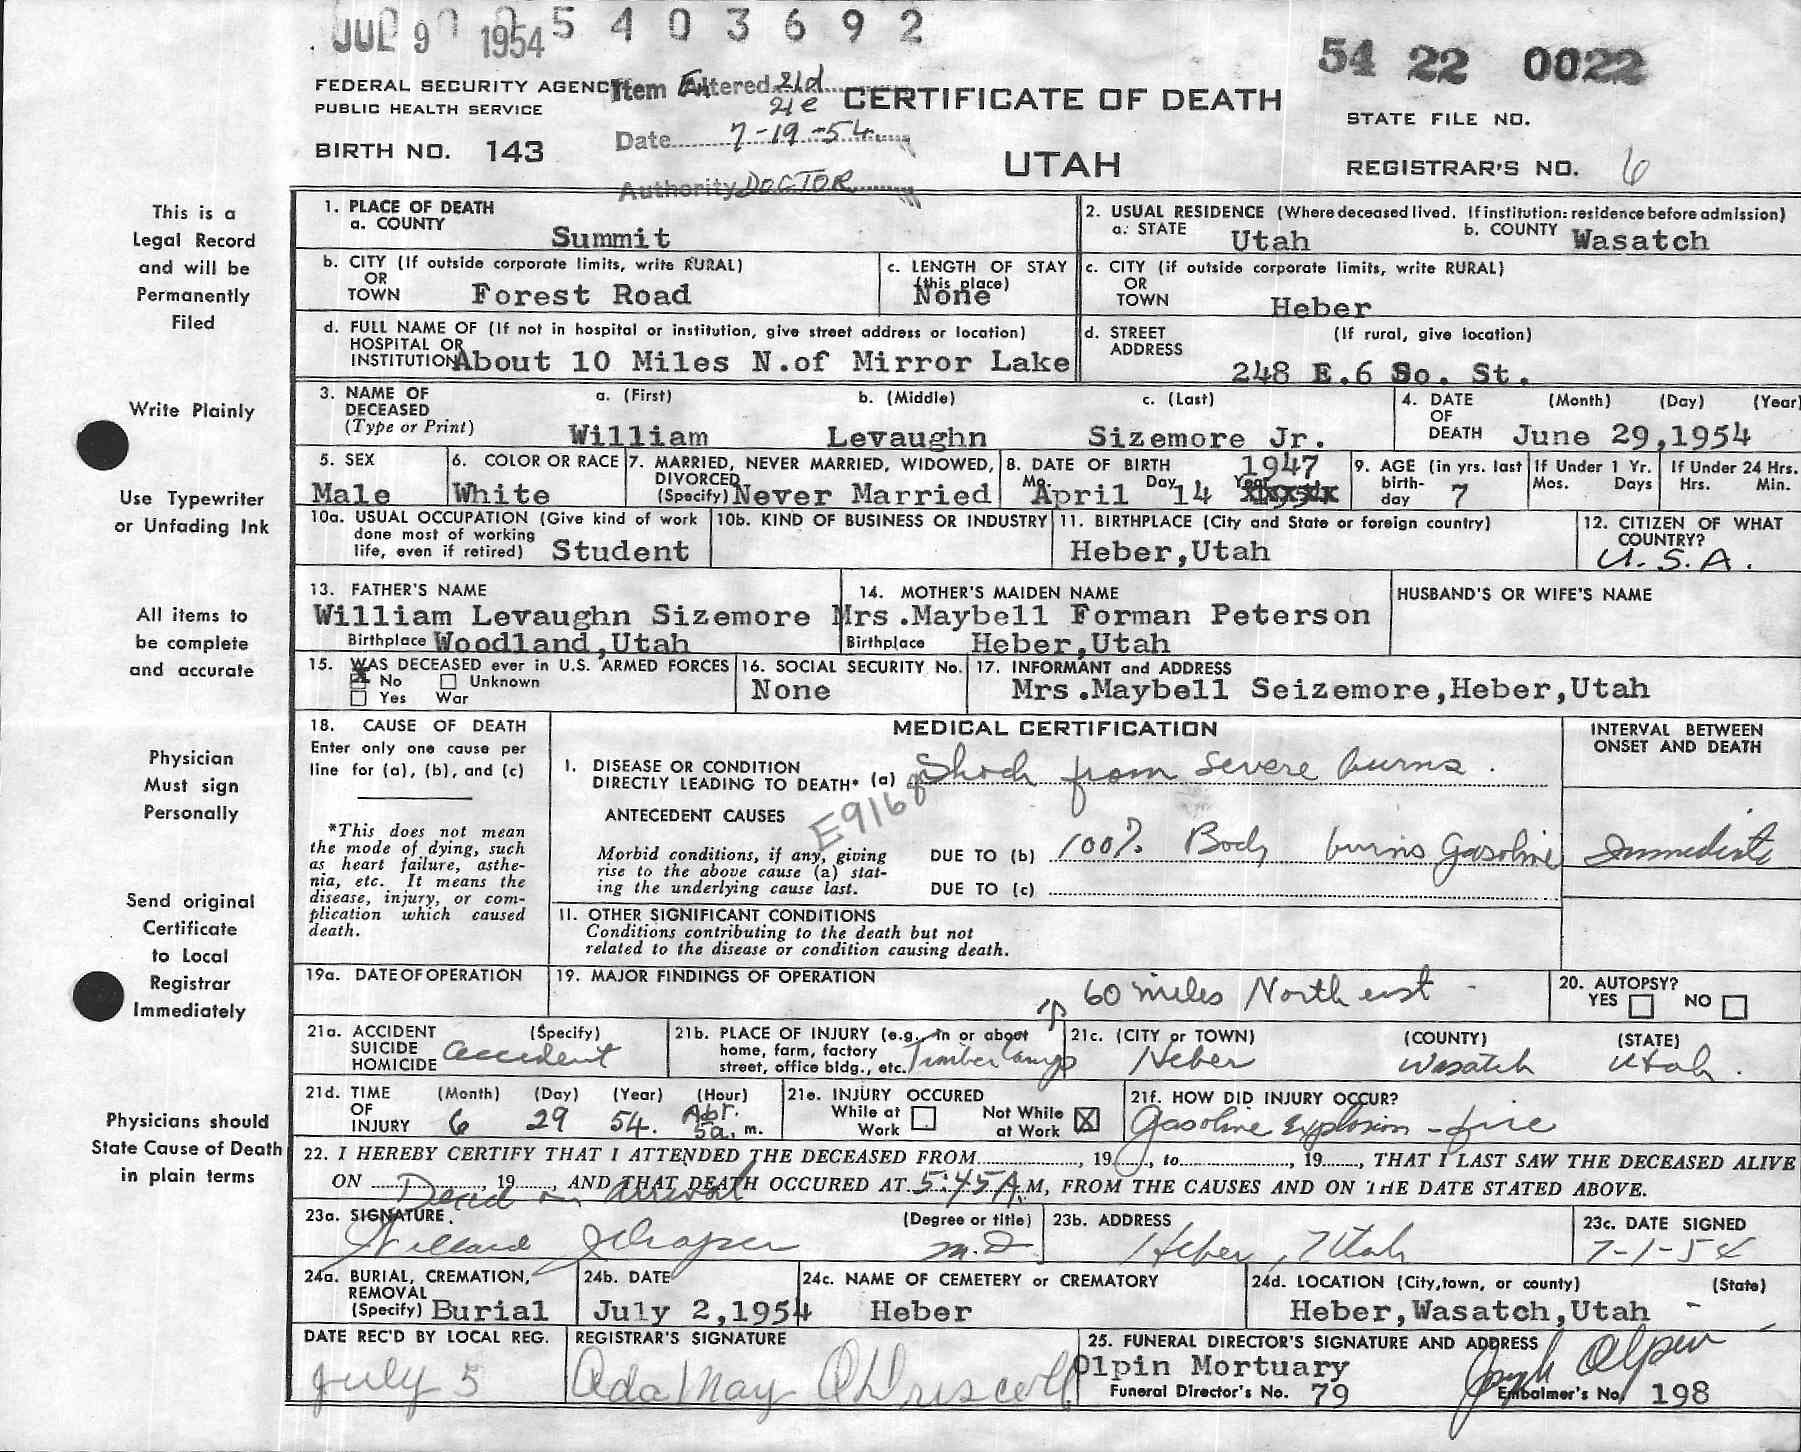 JUL 9 1954 5 4 0 3 6 9 2
54 22 0022
FEDERAL SECURITY AGENCY
PUBLIC HEALTH SERVICE
Item Altered 21d
21e
Date 7-19-54
Authority DOCTOR
CERTIFICATE OF DEATH
UTAH
STATE FILE NO.
BIRTH NO. 143
REGISTRAR'S NO. 6
This is a
Legal Record
and will be
Permanently
Filed
Write Plainly
Use Typewriter
or Unfading Ink
All items to
be complete
and accurate
Physician
Must sign
Personally
Send original
Certificate
to Local
Registrar
Immediately
Physicians should
State Cause of Death
in plain terms
1. PLACE OF DEATH
a. COUNTY Summit
2. USUAL RESIDENCE (Where deceased lived. If institution: residence before admission)
a. STATE Utah b. COUNTY Wasatch
b. CITY (If outside corporate limits, write RURAL)
OR
TOWN Forest Road
c. LENGTH OF STAY
(this place)
None
c. CITY (if outside corporate limits, write RURAL)
OR
TOWN Heber
d. FULL NAME OF (If not in hospital or institution, give street address or location)
HOSPITAL OR
INSTITUTION About 10 Miles N.of Mirror Lake
d. STREET (If rural, give location)
ADDRESS
248 E.6 So. St.
3. NAME OF
DECEASED
(Type or Print)
a. (First) b. (Middle) c. (Last)
William Levaughn Sizemore Jr.
4. DATE (Month) (Day) (Year)
OF
DEATH June 29,1954
5. SEX
Male
6. COLOR OR RACE
White
7. MARRIED, NEVER MARRIED, WIDOWED,
DIVORCED
(Specify) Never Married
8. DATE OF BIRTH 1947
Mo. Day Year
April 14
9. AGE (in yrs. last
birth-
day 7
If Under 1 Yr.
Mos. Days
If Under 24 Hrs.
Hrs. Min.
10a. USUAL OCCUPATION (Give kind of work
done most of working
life, even if retired) Student
10b. KIND OF BUSINESS OR INDUSTRY
11. BIRTHPLACE (City and State or foreign country)
Heber,Utah
12. CITIZEN OF WHAT
COUNTRY?
U.S.A.
13. FATHER'S NAME
William Levaughn Sizemore
Birthplace Woodland,Utah
14. MOTHER'S MAIDEN NAME
Mrs.Maybell Forman Peterson
Birthplace Heber,Utah
HUSBAND'S OR WIFE'S NAME
15. WAS DECEASED ever in U.S. ARMED FORCES
No Unknown
Yes War
16. SOCIAL SECURITY No.
None
17. INFORMANT and ADDRESS
Mrs.Maybell Seizemore,Heber,Utah
18. CAUSE OF DEATH
Enter only one cause per
line for (a), (b), and (c)
*This does not mean
the mode of dying, such
as heart failure, asthe-
nia, etc. It means the
disease, injury, or com-
plication which caused
death.
MEDICAL CERTIFICATION
INTERVAL BETWEEN
ONSET AND DEATH
I. DISEASE OR CONDITION
DIRECTLY LEADING TO DEATH* (a) Shock from severe burns.
E916
ANTECEDENT CAUSES
Morbid conditions, if any, giving
rise to the above cause (a) stat-
ing the underlying cause last.
DUE TO (b) 100% Body burns gasoline Immediate
DUE TO (c)
II. OTHER SIGNIFICANT CONDITIONS
Conditions contributing to the death but not
related to the disease or condition causing death.
19a. DATE OF OPERATION
19. MAJOR FINDINGS OF OPERATION
60 miles North east
20. AUTOPSY?
YES NO
21a. ACCIDENT (Specify)
SUICIDE
HOMICIDE Accident
21b. PLACE OF INJURY (e.g., in or about
home, farm, factory
street, office bldg., etc. Timber Camp
21c. (CITY or TOWN) (COUNTY) (STATE)
Heber Wasatch Utah.
21d. TIME (Month) (Day) (Year) (Hour)
OF
INJURY 6 29 54. Abt. 5a. m.
21e. INJURY OCCURED
While at Work Not While at Work
21f. HOW DID INJURY OCCUR?
Gasoline Explosion - fire
22. I HEREBY CERTIFY THAT I ATTENDED THE DECEASED FROM, 19, to, 19, THAT I LAST SAW THE DECEASED ALIVE
ON Dead on arrival, 19, AND THAT DEATH OCCURED AT 5:45 A.M, FROM THE CAUSES AND ON THE DATE STATED ABOVE.
23a. SIGNATURE (Degree or title)
Willard M.D.
23b. ADDRESS
Heber, Utah
23c. DATE SIGNED
7-1-54
24a. BURIAL, CREMATION,
REMOVAL
(Specify) Burial
24b. DATE
July 2,1954
24c. NAME OF CEMETERY or CREMATORY
Heber
24d. LOCATION (City,town, or county) (State)
Heber,Wasatch,Utah
DATE REC'D BY LOCAL REG.
July 5
REGISTRAR'S SIGNATURE
Ada May O'Driscoll
25. FUNERAL DIRECTOR'S SIGNATURE AND ADDRESS
Olpin Mortuary Joseph Olpin
Funeral Director's No. 79 Embalmer's No. 198